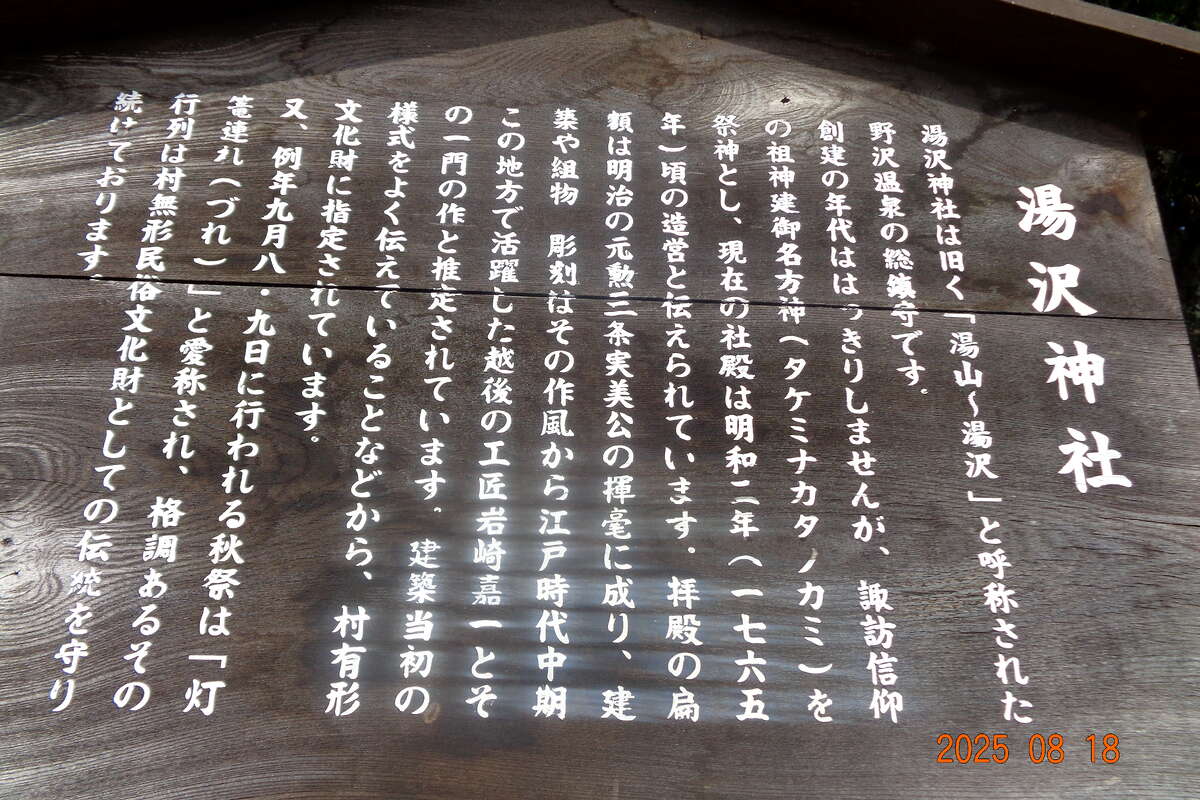 湯沢神社
湯沢神社は旧く「湯山～湯沢」と呼称された
野沢温泉の総鎮守です。
創建の年代ははっきりしませんが、諏訪信仰
の祖神建御名方神（タケミナカタノカミ）を
祭神とし、現在の社殿は明和二年（一七六五
年）頃の造営と伝えられています。拝殿の扁
額は明治の元勲三条実美公の揮毫に成り、建
築や組物 彫刻はその作風から江戸時代中期
この地方で活躍した越後の工匠岩崎嘉一とそ
の一門の作と推定されています。建築当初の
様式をよく伝えていることなどから、村有形
文化財に指定されています。
又、例年九月八・九日に行われる秋祭は「灯
篭連れ（づれ）」と愛称され、格調あるその
行列は村無形民俗文化財としての伝統を守り
続けております。
2025 08 18